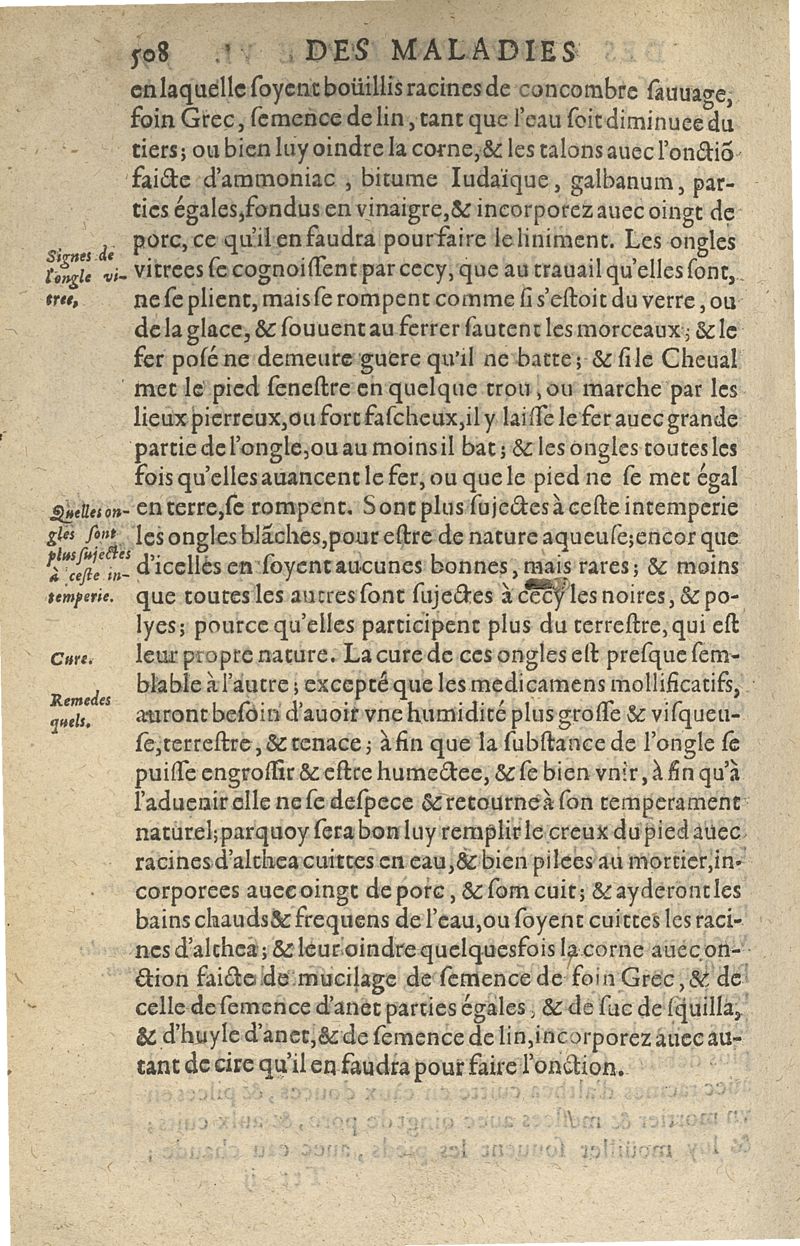 508 DES MALADIES
en laquelle ſoyent boüillis racines de concombre ſauuage,
foin Grec, ſemence de lin, tant que l'eau ſoit diminuee du
tiers; ou bien luy oindre la corne, & les talons auec l'onctiõ
faicte d'ammoniac, bitume Iudaïque, galbanum, par-
ties égales, fondus en vinaigre, & incorporez auec oingt de
porc, ce qu'il en faudra pour faire le liniment. Les ongles
Signes de
l'ongle vi-
tree,
vitrees ſe cognoiſſent par cecy, que au trauail qu'elles ſont,
ne ſe plient, mais ſe rompent comme ſi s'eſtoit du verre, ou
de la glace, & ſouuent au ferrer ſautent les morceaux; & le
fer poſé ne demeure guere qu'il ne batte; & ſi le Cheual
met le pied ſeneſtre en quelque trou, ou marche par les
lieux pierreux, ou fort faſcheux, il y laiſſe le fer auec grande
partie de l'ongle, ou au moins il bat; & les ongles toutes les
fois qu'elles auancent le fer, ou que le pied ne ſe met égal
en terre, ſe rompent. Sont plus ſujectes à ceſte intemperie
Quelles on-
gles ſont
plus ſujectes
à ceſte in-
temperie.
les ongles blãches, pour eſtre de nature aqueuſe; encor que
d'icelles en ſoyent aucunes bonnes, mais rares; & moins
que toutes les autres ſont ſujectes à cecy les noires, & po-
lyes; pource qu'elles participent plus du terreſtre, qui eſt
Cure.
leur propre nature. La cure de ces ongles eſt preſque ſem-
blable à l'autre; excepté que les medicamens mollificatifs,
Remedes
quels.
auront beſoin d'auoir vne humidité plus groſſe & viſqueu-
ſe, terreſtre, & tenace; à fin que la ſubſtance de l'ongle ſe
puiſſe engroſſir & eſtre humectee, & ſe bien vnir, à fin qu'à
l'aduenir elle ne ſe deſpece & retourne à ſon temperament
naturel; parquoy ſera bon luy remplir le creux du pied auec
racines d'althea cuittes en eau, & bien pilees au mortier, in-
corporees auec oingt de porc, & ſom cuit; & ayderont les
bains chauds & frequens de l'eau, ou ſoyent cuittes les raci-
nes d'althea; & leur oindre quelquesfois la corne auec on-
ction faicte de mucilage de ſemence de foin Grec, & de
celle de ſemence d'anet parties égales, & de ſuc de ſquilla,
& d'huyle d'anet, & de ſemence de lin, incorporez auec au-
tant de cire qu'il en faudra pour faire l'onction.